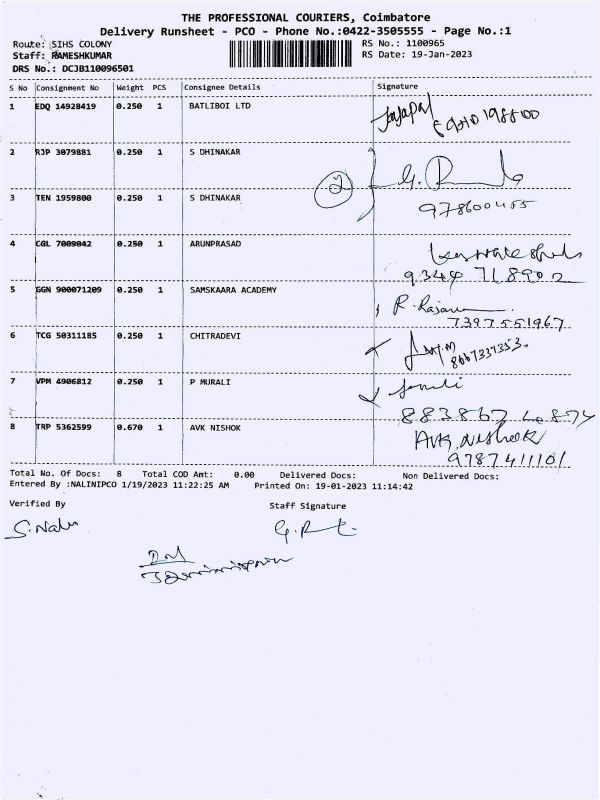 THE PROFESSIONAL COURIERS, Coimbatore
Delivery Runsheet - PCO - Phone No.:0422-3505555 - Page No.:1
Route: SIHS COLONY RS No.: 1100965
Staff: RAMESHKUMAR RS Date: 19-Jan-2023
DRS No.: DCJB110096501
S No Consignment No Weight PCS Consignee Details Signature
1 EDQ 14928419 0.250 1 BATLIBOI LTD
Jayapal
2 RJP 3079881 0.250 1 S DHINAKAR
2
3 TEN 1959800 0.250 1 S DHINAKAR
978600455
4 CGL 7009042 0.250 1 ARUNPRASAD
9344 718902
5 GGN 900071209 0.250 1 SAMSKAARA ACADEMY
R. Rajan
7397551967
6 TCG 50311185 0.250 1 CHITRADEVI
8667337353.
7 VPM 4906812 0.250 1 P MURALI
8 TRP 5362599 0.670 1 AVK NISHOK
AVK. Nishok
9787411101
Total No. Of Docs: 8 Total COD Amt: 0.00 Delivered Docs: Non Delivered Docs:
Entered By :NALINIPCO 1/19/2023 11:22:25 AM Printed On: 19-01-2023 11:14:42
Verified By Staff Signature